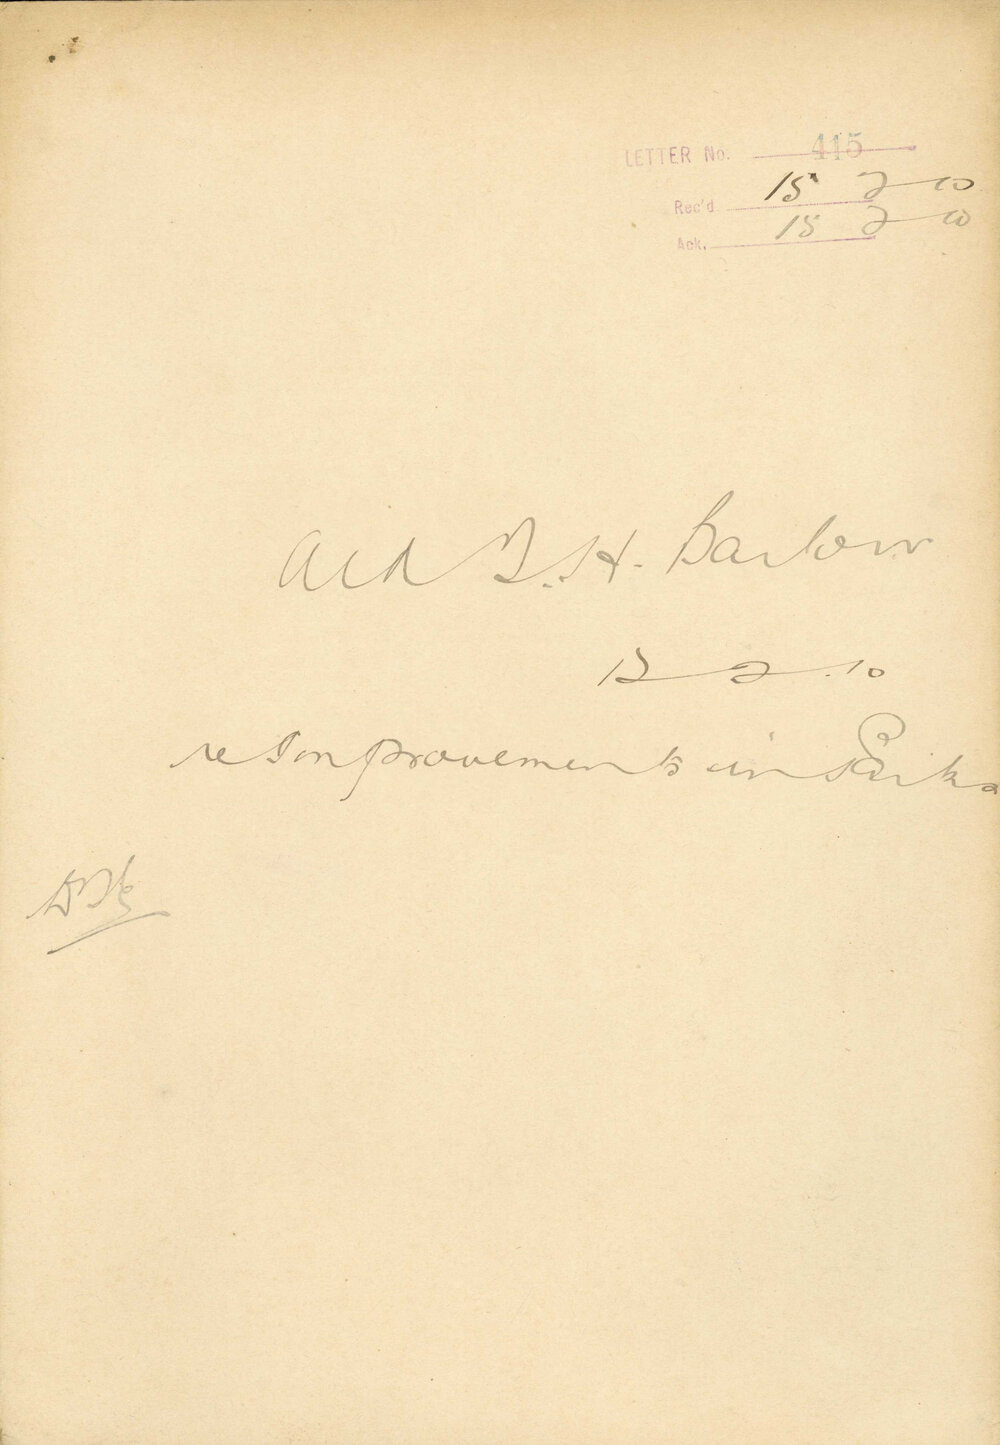 LETTER No. 415
Rec'd 15 2 10
Ack. 15 2 10
Ald T. H. Barlow
12 2 . 10
re Improvements in Parks